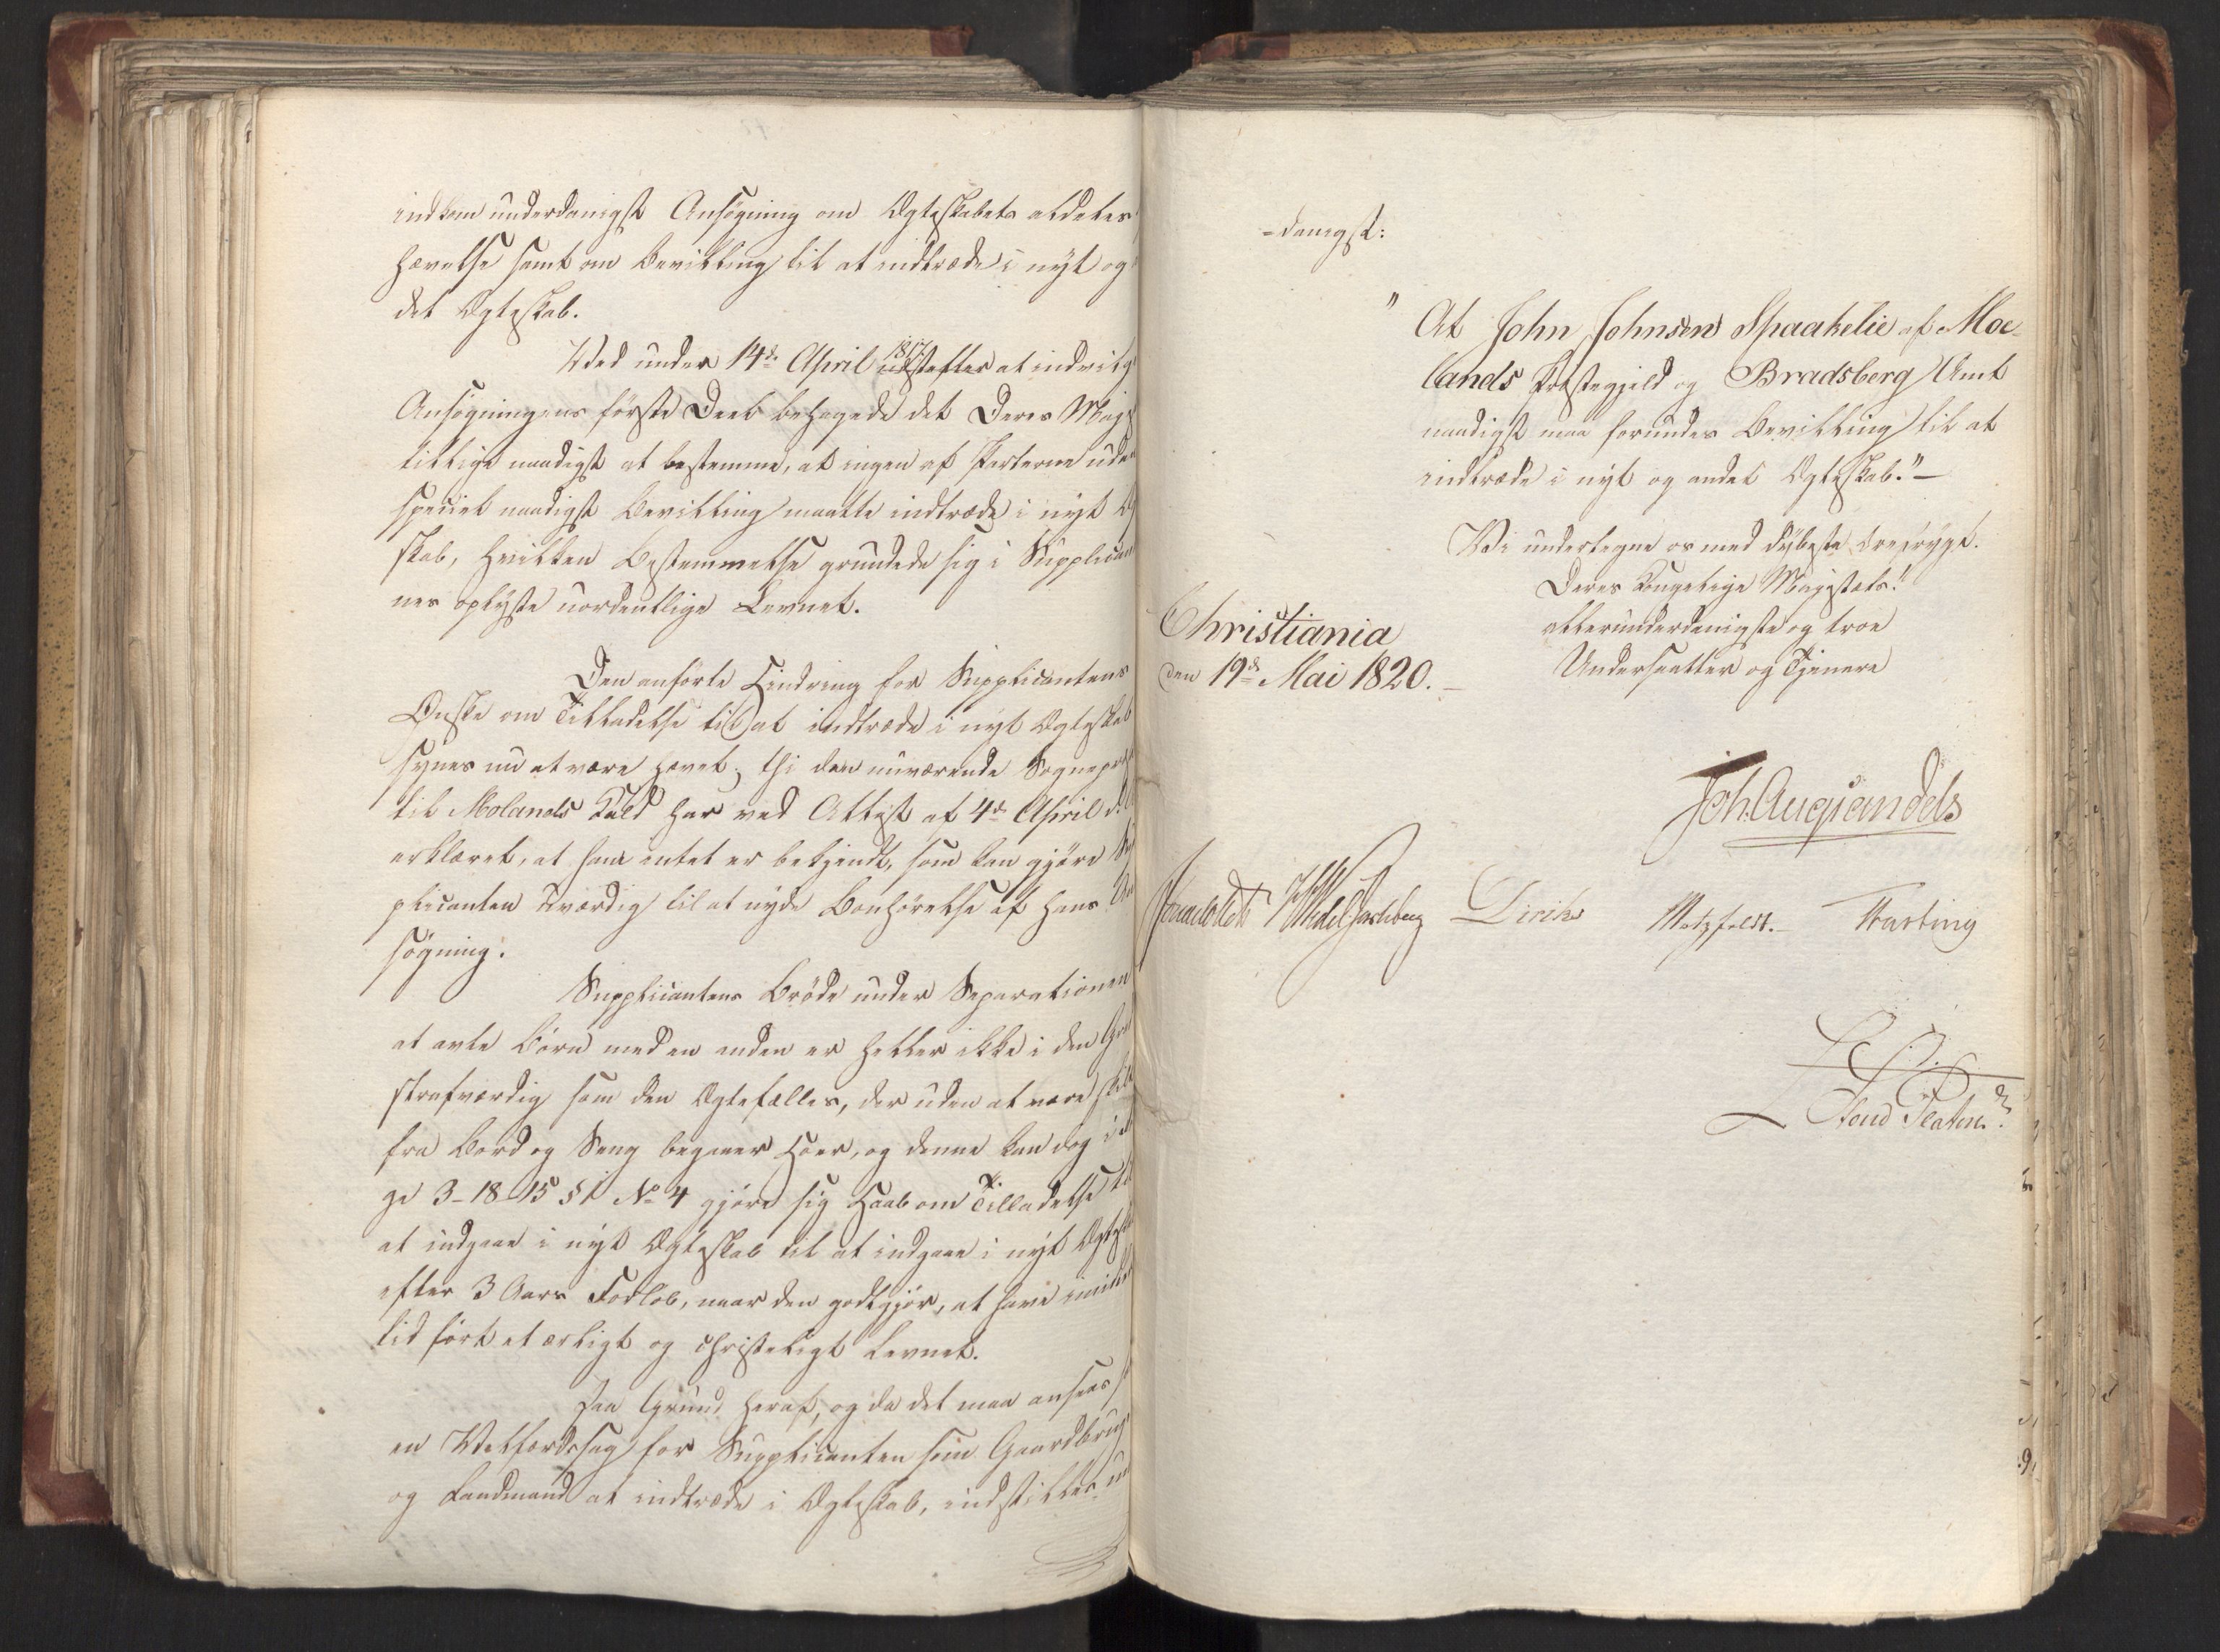 indkom underdanigst Ansøgning om Ægteskabets aldeles
Hævelse samt om Bevilling til at indtræde i nyt og
det Ægteskab.
Ved under 14de April 1817 at indvilge
Ansøgningens første Deel behagede det Deres Maje
naadigst at bestemme, at ingen af Parterne uden
speciel naadigst Bevilling maatte indtræde i nyt Æg
skab, hvilken Bestemmelse grundede sig i Supplican
nes oplyste uordentlige Levnet.
Den anførte Hindring for Supplicantens
Ønske om Tilladelse til at indtræde i nyt Ægteskab
synes nu at være hævet; thi den nuværende Sognepre
til Molands Kald har ved Attest af 4de April d. A.
erklæret, at ham intet er bekjendt, som kan gjøre Sup
plicanten uværdig til at nyde Bønhørelse af hans An
søgning.
Supplicantens Brøde under Separationen
at avle Børn med en anden er heller ikke i den Grad
strafværdig som den Ægtefælles, der uden at være skilt
fra Bord og Seng begaaer Hoer, og denne kan dog iføl
ge 3-18-15 § 1 No 4 gjøre sig Haab om Tilladelse til
at indgaae i nyt Ægteskab til at indgaae i nyt Ægtesk
efter 3 Aars Forløb, naar den godtgjør, at have imidler
tid ført et ærligt og christeligt Levnet.
Paa Grund heraf, og da det maa ansees s
en Velfærdssag for Supplicanten som Gaardbrug
og Landmand at indtræde i Ægteskab, indstilles un
-danigst:
"At John Johnsen Spaakelie af Moe-
lands Præstegjeld og Bradsberg Amt
naadigst maa forundes Bevilling til at
indtræde i nyt og andet Ægteskab."—
Vi undertegne os med dybeste Ærefrygt.
Deres Kongelige Majestæts!
allerunderdanigste og troe
Undersaatter og Tjenere
Christiania
den 19de Mai 1820.
Joh. Aug. Sandels
Sommerhielm HWedelJarlsberg Diriks Motzfeldt. Krefting